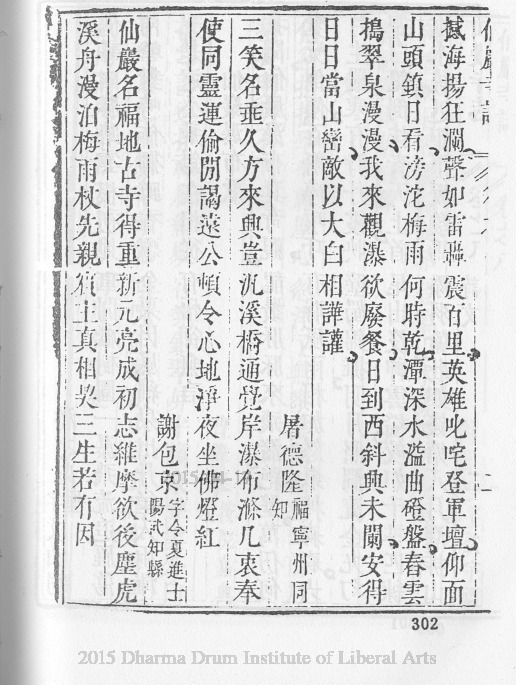 仙巖寺誌
撼海揚狂瀾聲如雷轟震百里英雄叱咤登軍壇仰面
山頭鎮日看滂沱梅雨何時乾潭深水溢曲磴盤春雲
搗翠泉漫漫我來觀瀑欲廢餐日到西斜興未闌安得
日日當山巒敵以大白相譁讙
屠德隆福寧州同知
三笑名垂久方來興豈汎溪橋通覺岸瀑布滌凡衷奉
使同靈運偷閒謁遠公頓令心地淨夜坐佛燈紅
謝包京字令夏進士陽武知縣
仙巖名福地古寺得重新元亮成初志維摩欲後塵虎
溪舟漫泊梅雨杖先親賓主真相契三生若有因
302
2015 Dharma Drum Institute of Liberal Arts